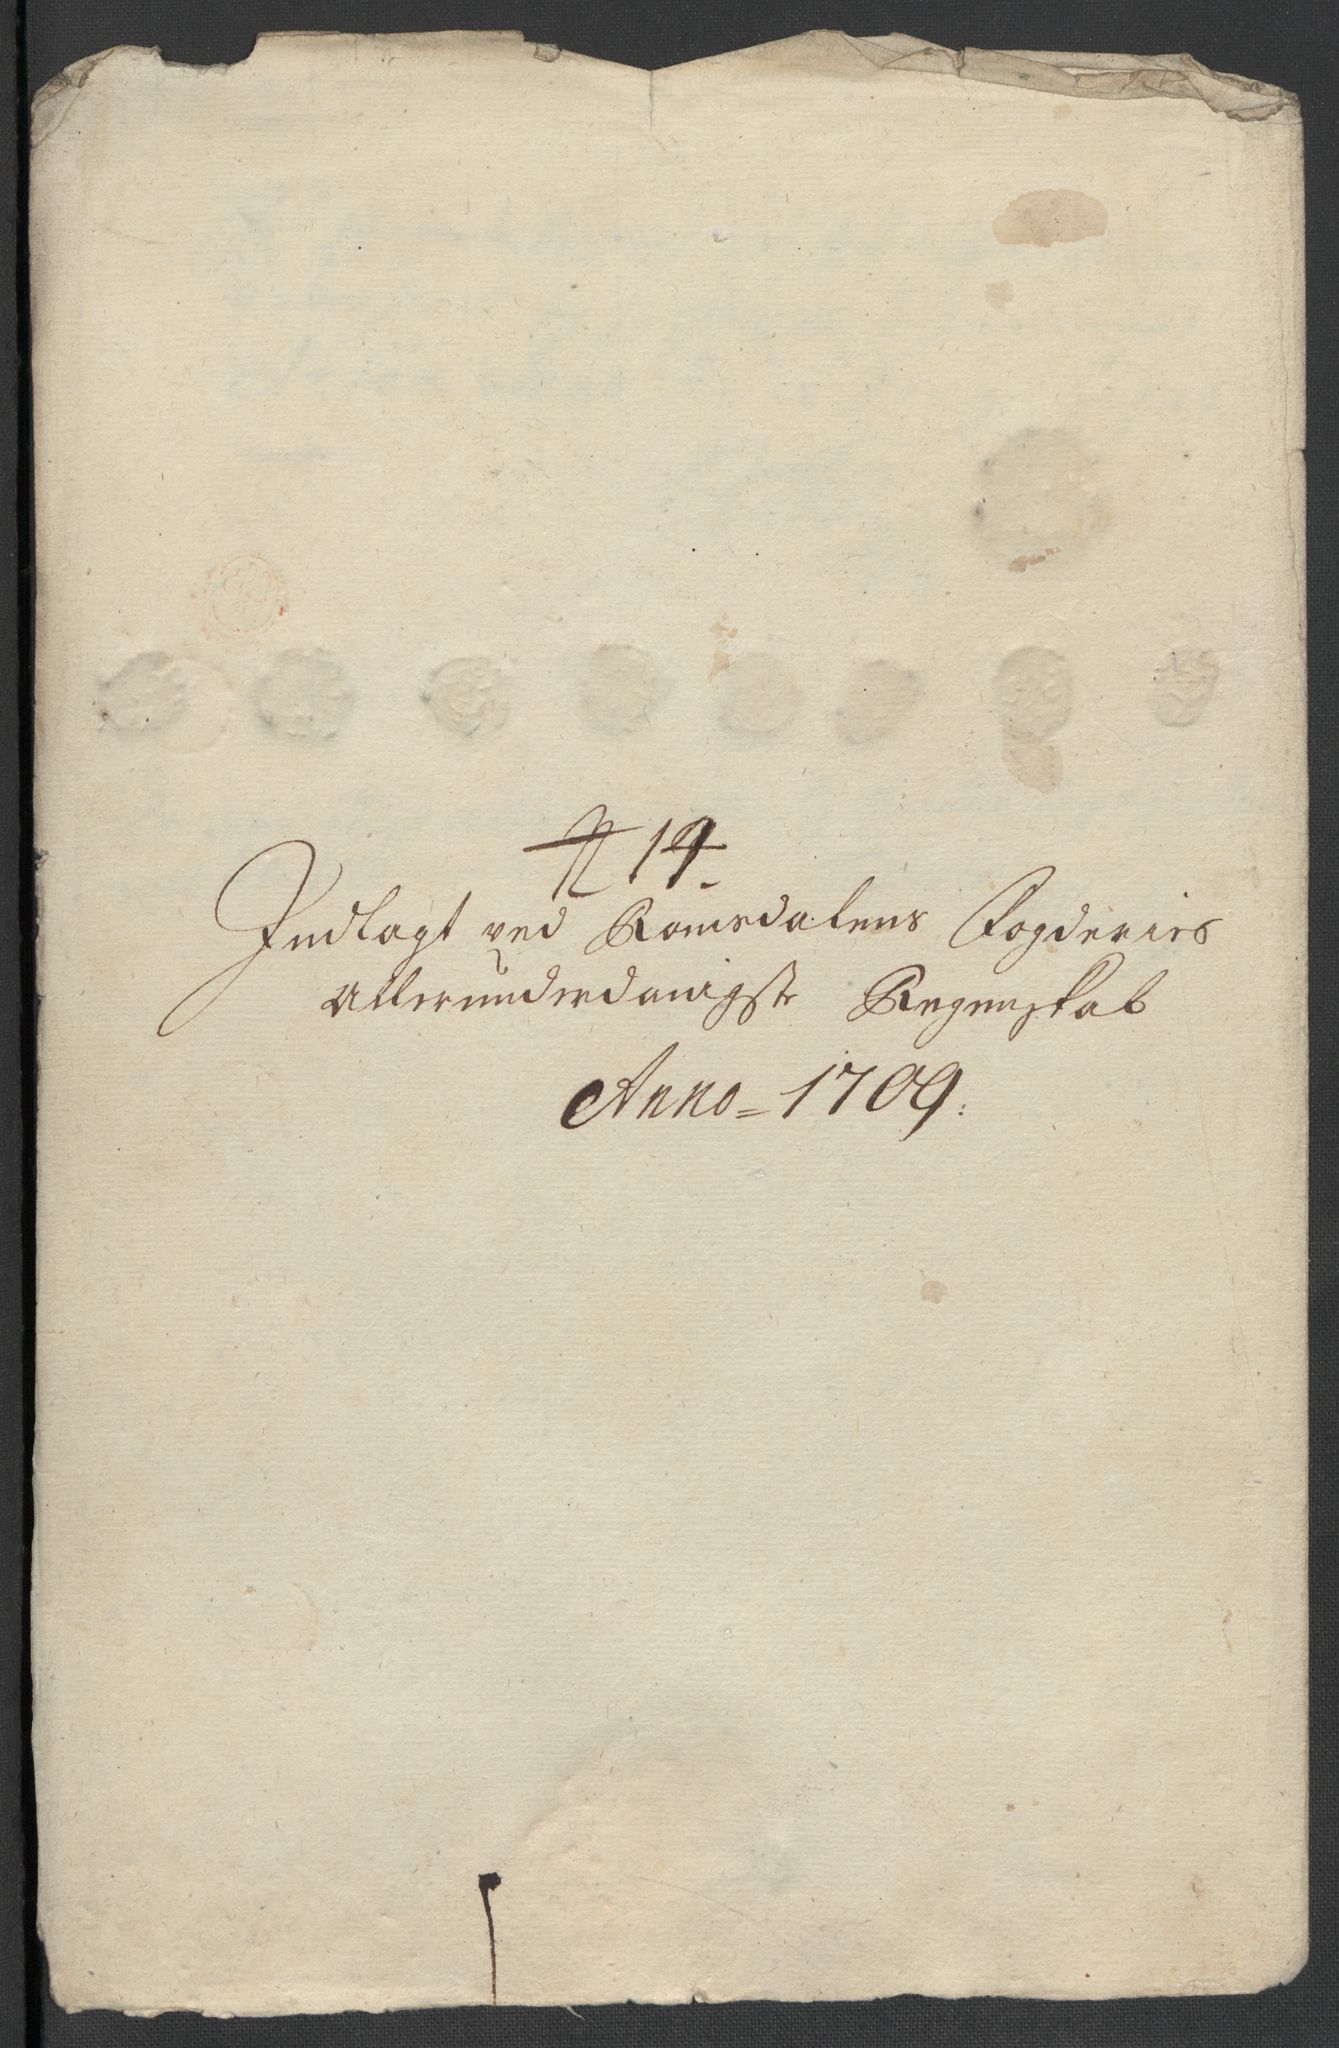 N 14
Indlagt ved Romsdalens Fogderies
Allerunderdanigste Regenskab
Anno = 1709: